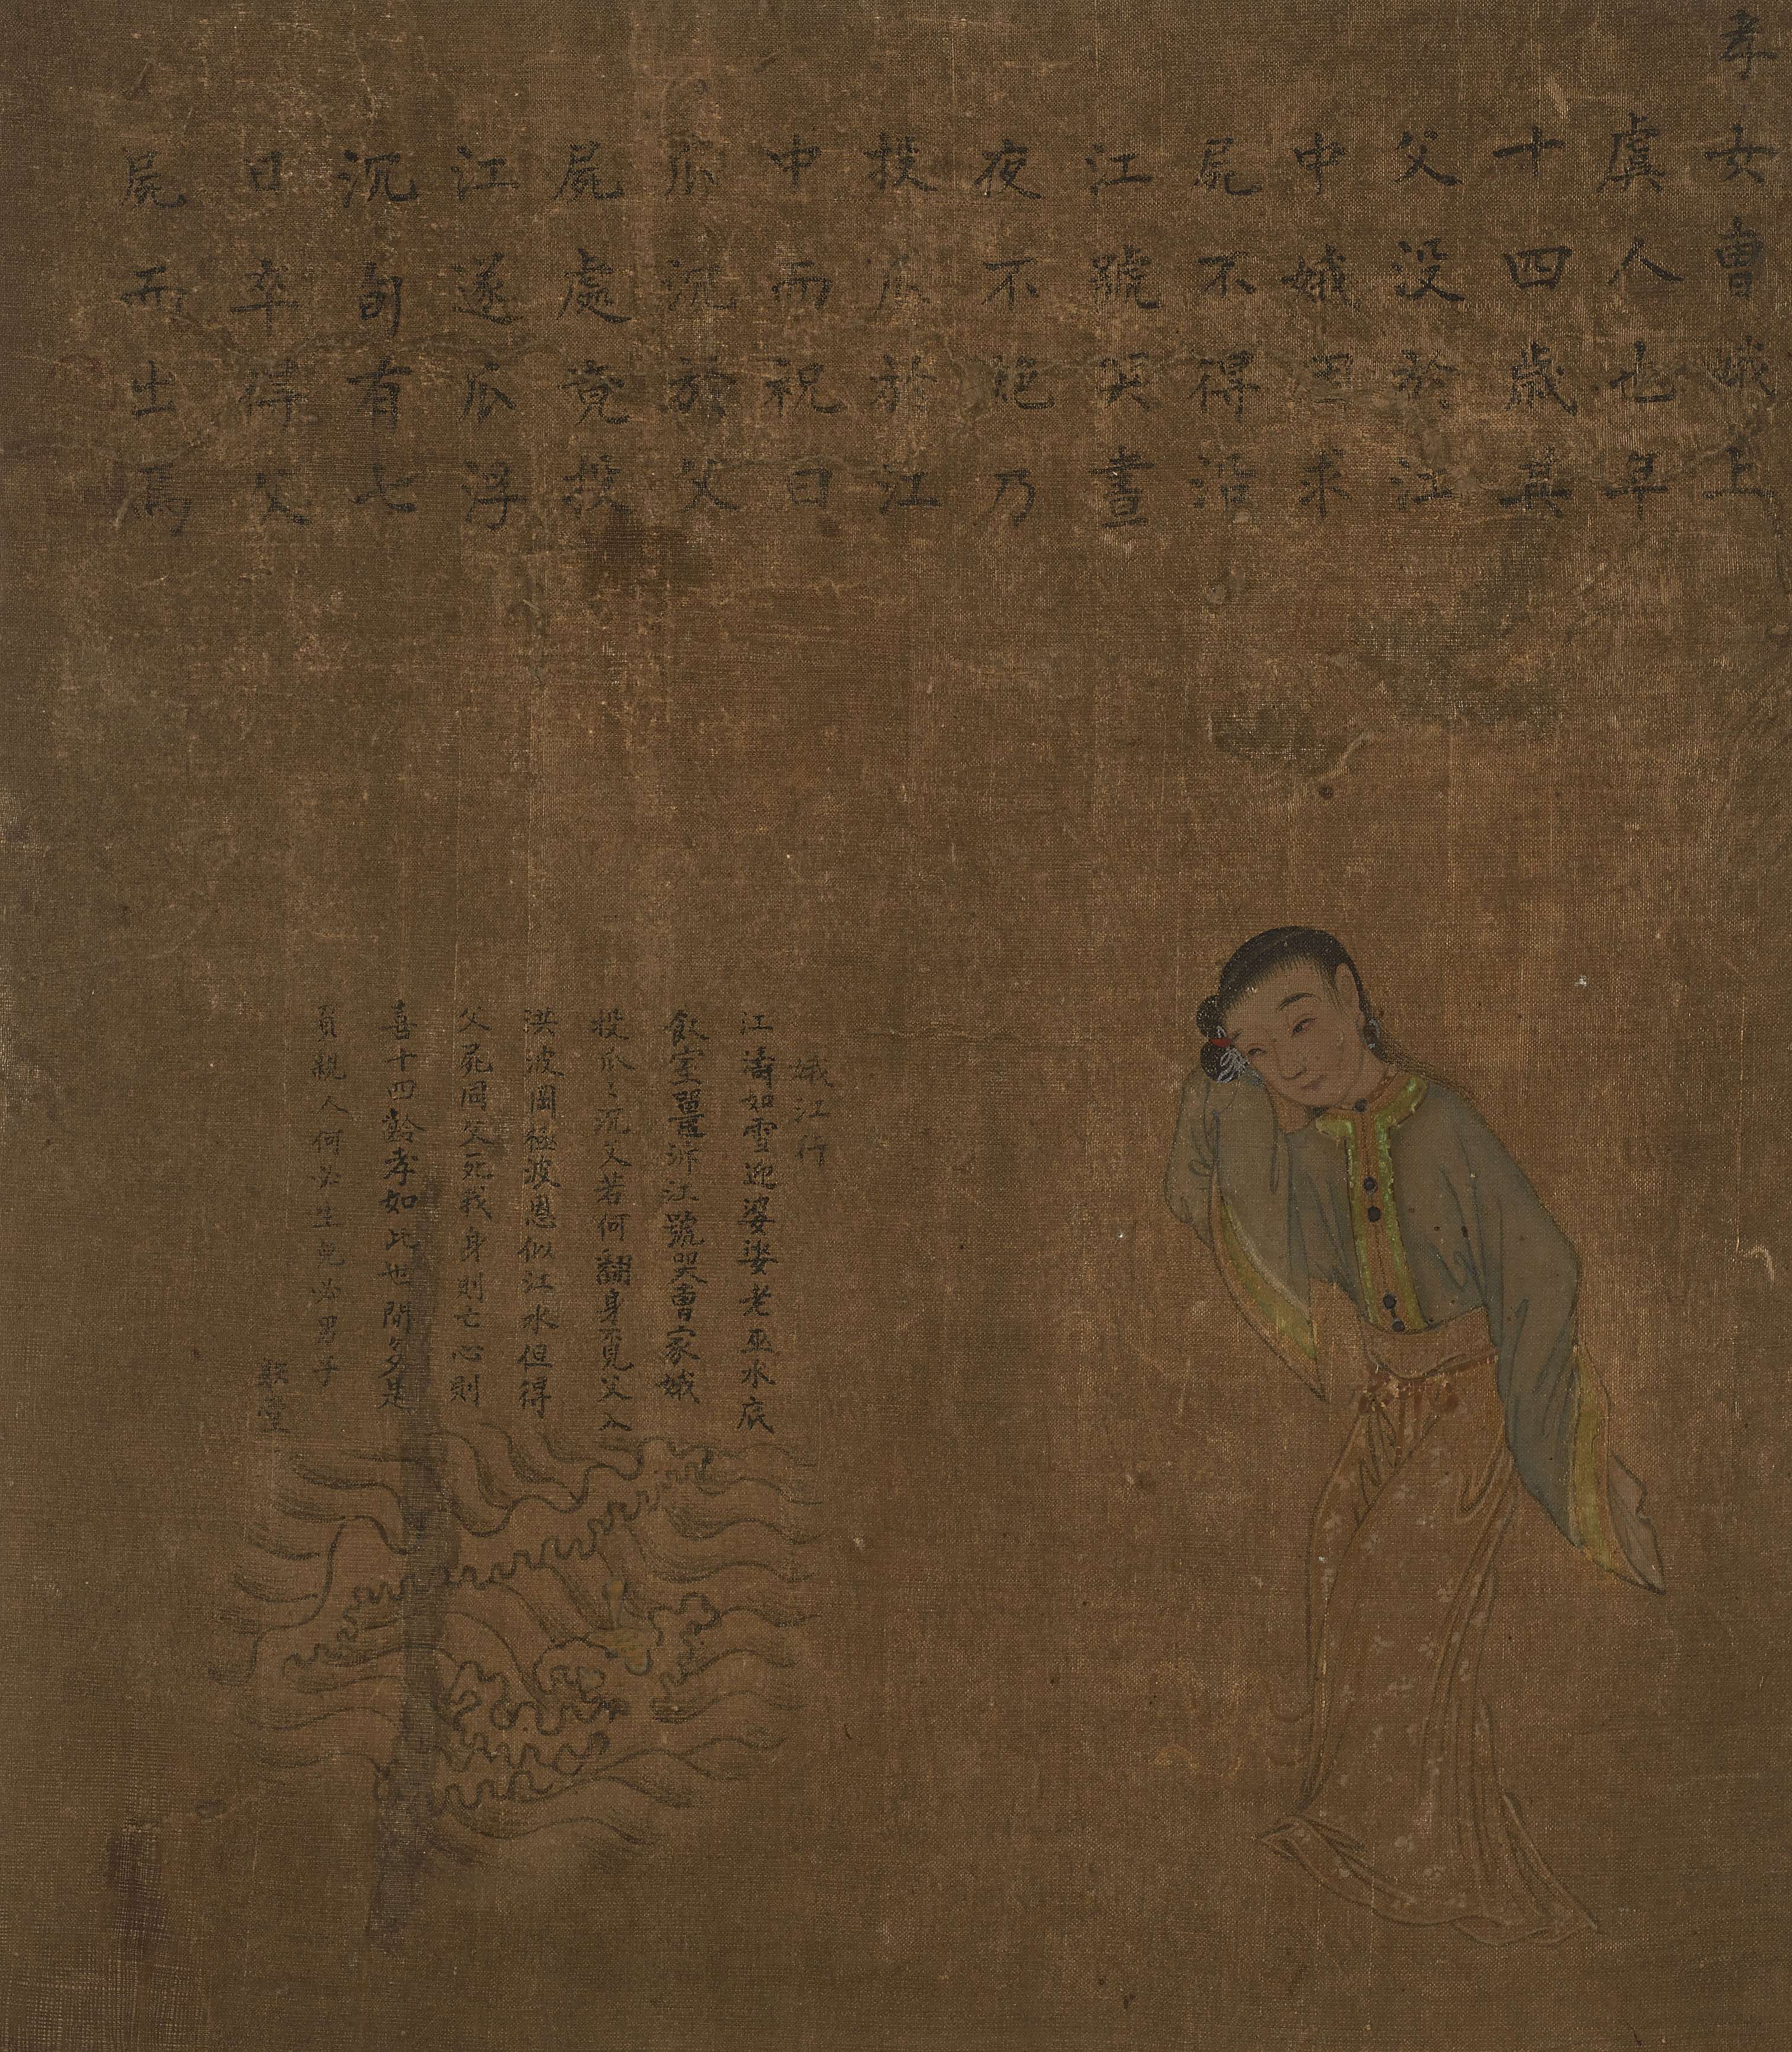 孝女曹娥上
虞人也年
十四歲其
父没於江
中娥求
屍不得沿
江號哭晝
夜不絶乃
投瓜於江
中而祝曰
瓜沉於父
屍處竟投
江遂瓜浮
沉旬有七
日卒得父
屍而出焉
娥江行
江濤如雪迎婆娑老巫水底
泝江號哭曹家娥
投瓜〻沉父若何翻身覓父入
洪波罔極波恩似江水但得
父屍同父死我身則亡心則
喜十四齡孝如此世間多是
負親人何必生兒必男子
堂